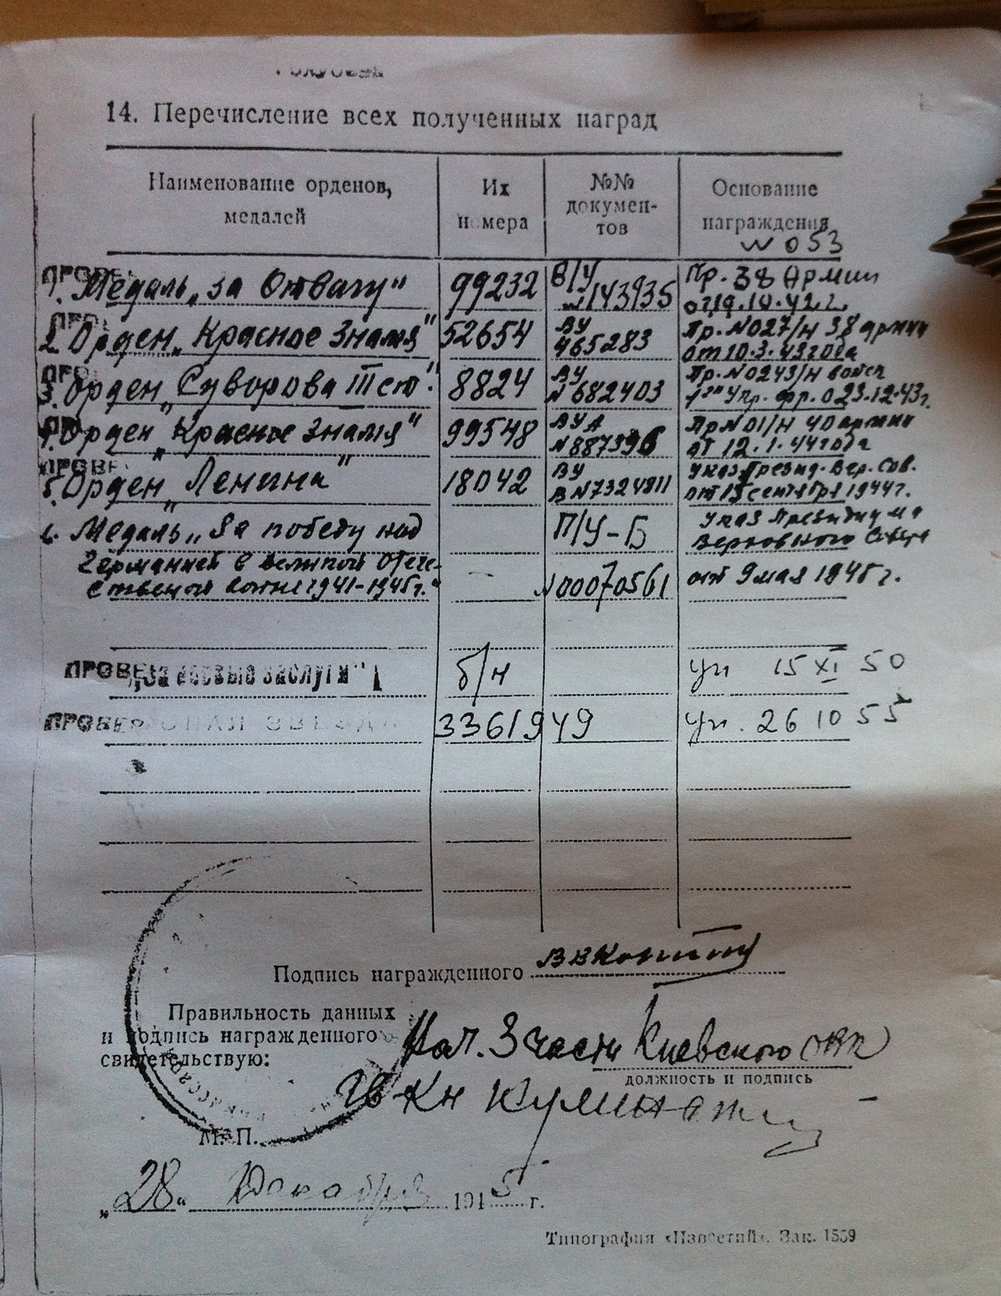 14. Перечисление всех полученных наград
Наименование орденов,
медалей
Их
номера
№№
докумен-
тов
Основание
награждения
N 053
1. Медаль „за Отвагу" 99232 В/У N143935 Пр. 38 Армии
от 19.10.42 г.
2. Орден „Красное Знамя" 52654 ВУ 465283 Пр. N027/Н 38 армии
от 10.3.43 года
3. Орден „Суворова III ст." 8824 ВУ N682403 Пр. N0243/Н войск
1го Укр. фр. 023.12.43г.
4. Орден „Красное Знамя" 99548 N887396 Пр N01/Н 40 армии
от 12.1.44 года
5. Орден „Ленина" 18042 ВУ N7324811 Указ Презид. Вер. Сов.
от 13 сентября 1944г.
6. Медаль „За победу над П/У-Б Указ Президиума
Верховного Совета
Германией в великой отече-
ственой войне 1941-1945г." N00070561 от 9 мая 1945 г.
ПРОВЕ „За боевые заслуги" б/н ук 15 XI 50
ПРОВЕР СНАЯ ЗВЕЗДА 3361949 ук. 26 10 55
Подпись награжденного
Правильность данных
и подпись награжденного
свидетельствую:
Нач. 3 части Киевского
должность и подпись
М. П.
„28" Декабря 1945 г.
Типография «Известий». Зак. 1559